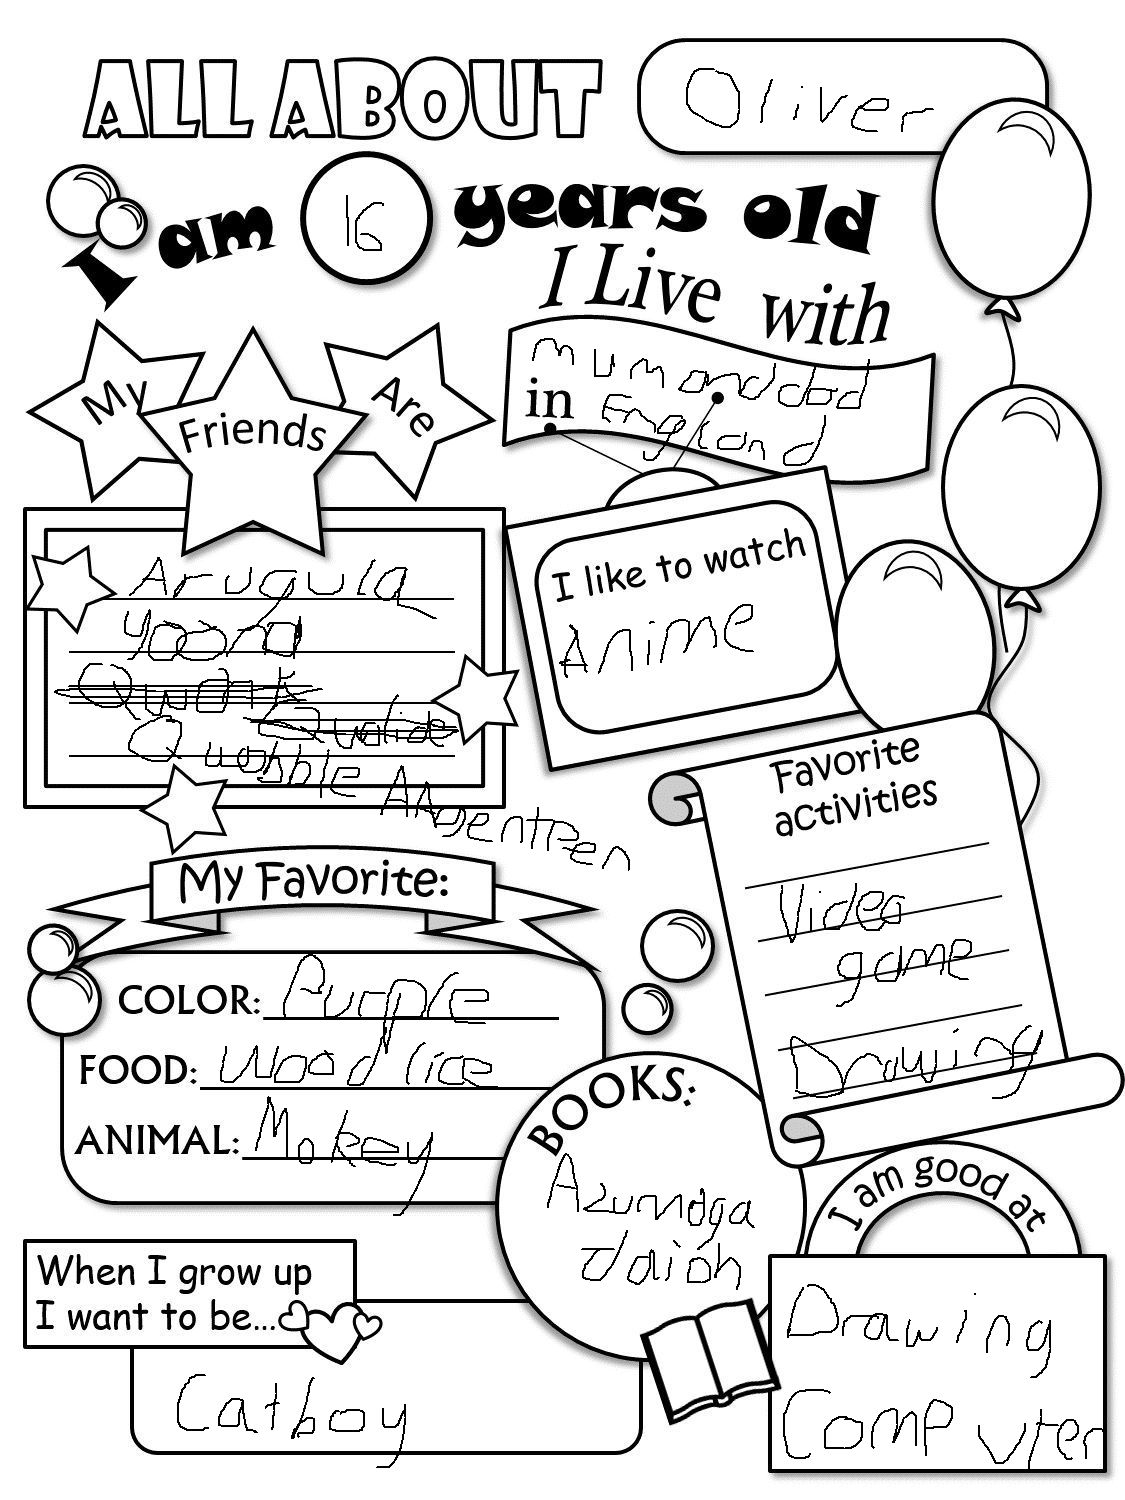 ALL ABOUT Oliver
I am 16 years old
I Live with
mum and dad
in England
My Friends Are
Arugula
yoana
Quabble Argentren
I like to watch
Anime
Favorite
activities
Video
game
Drawing
My Favorite:
COLOR: Purple
FOOD: Wood rice
ANIMAL: Mokey
BOOKS:
Azumaga
daioh
I am good at
Drawing
Computer
When I grow up
I want to be...
Catboy